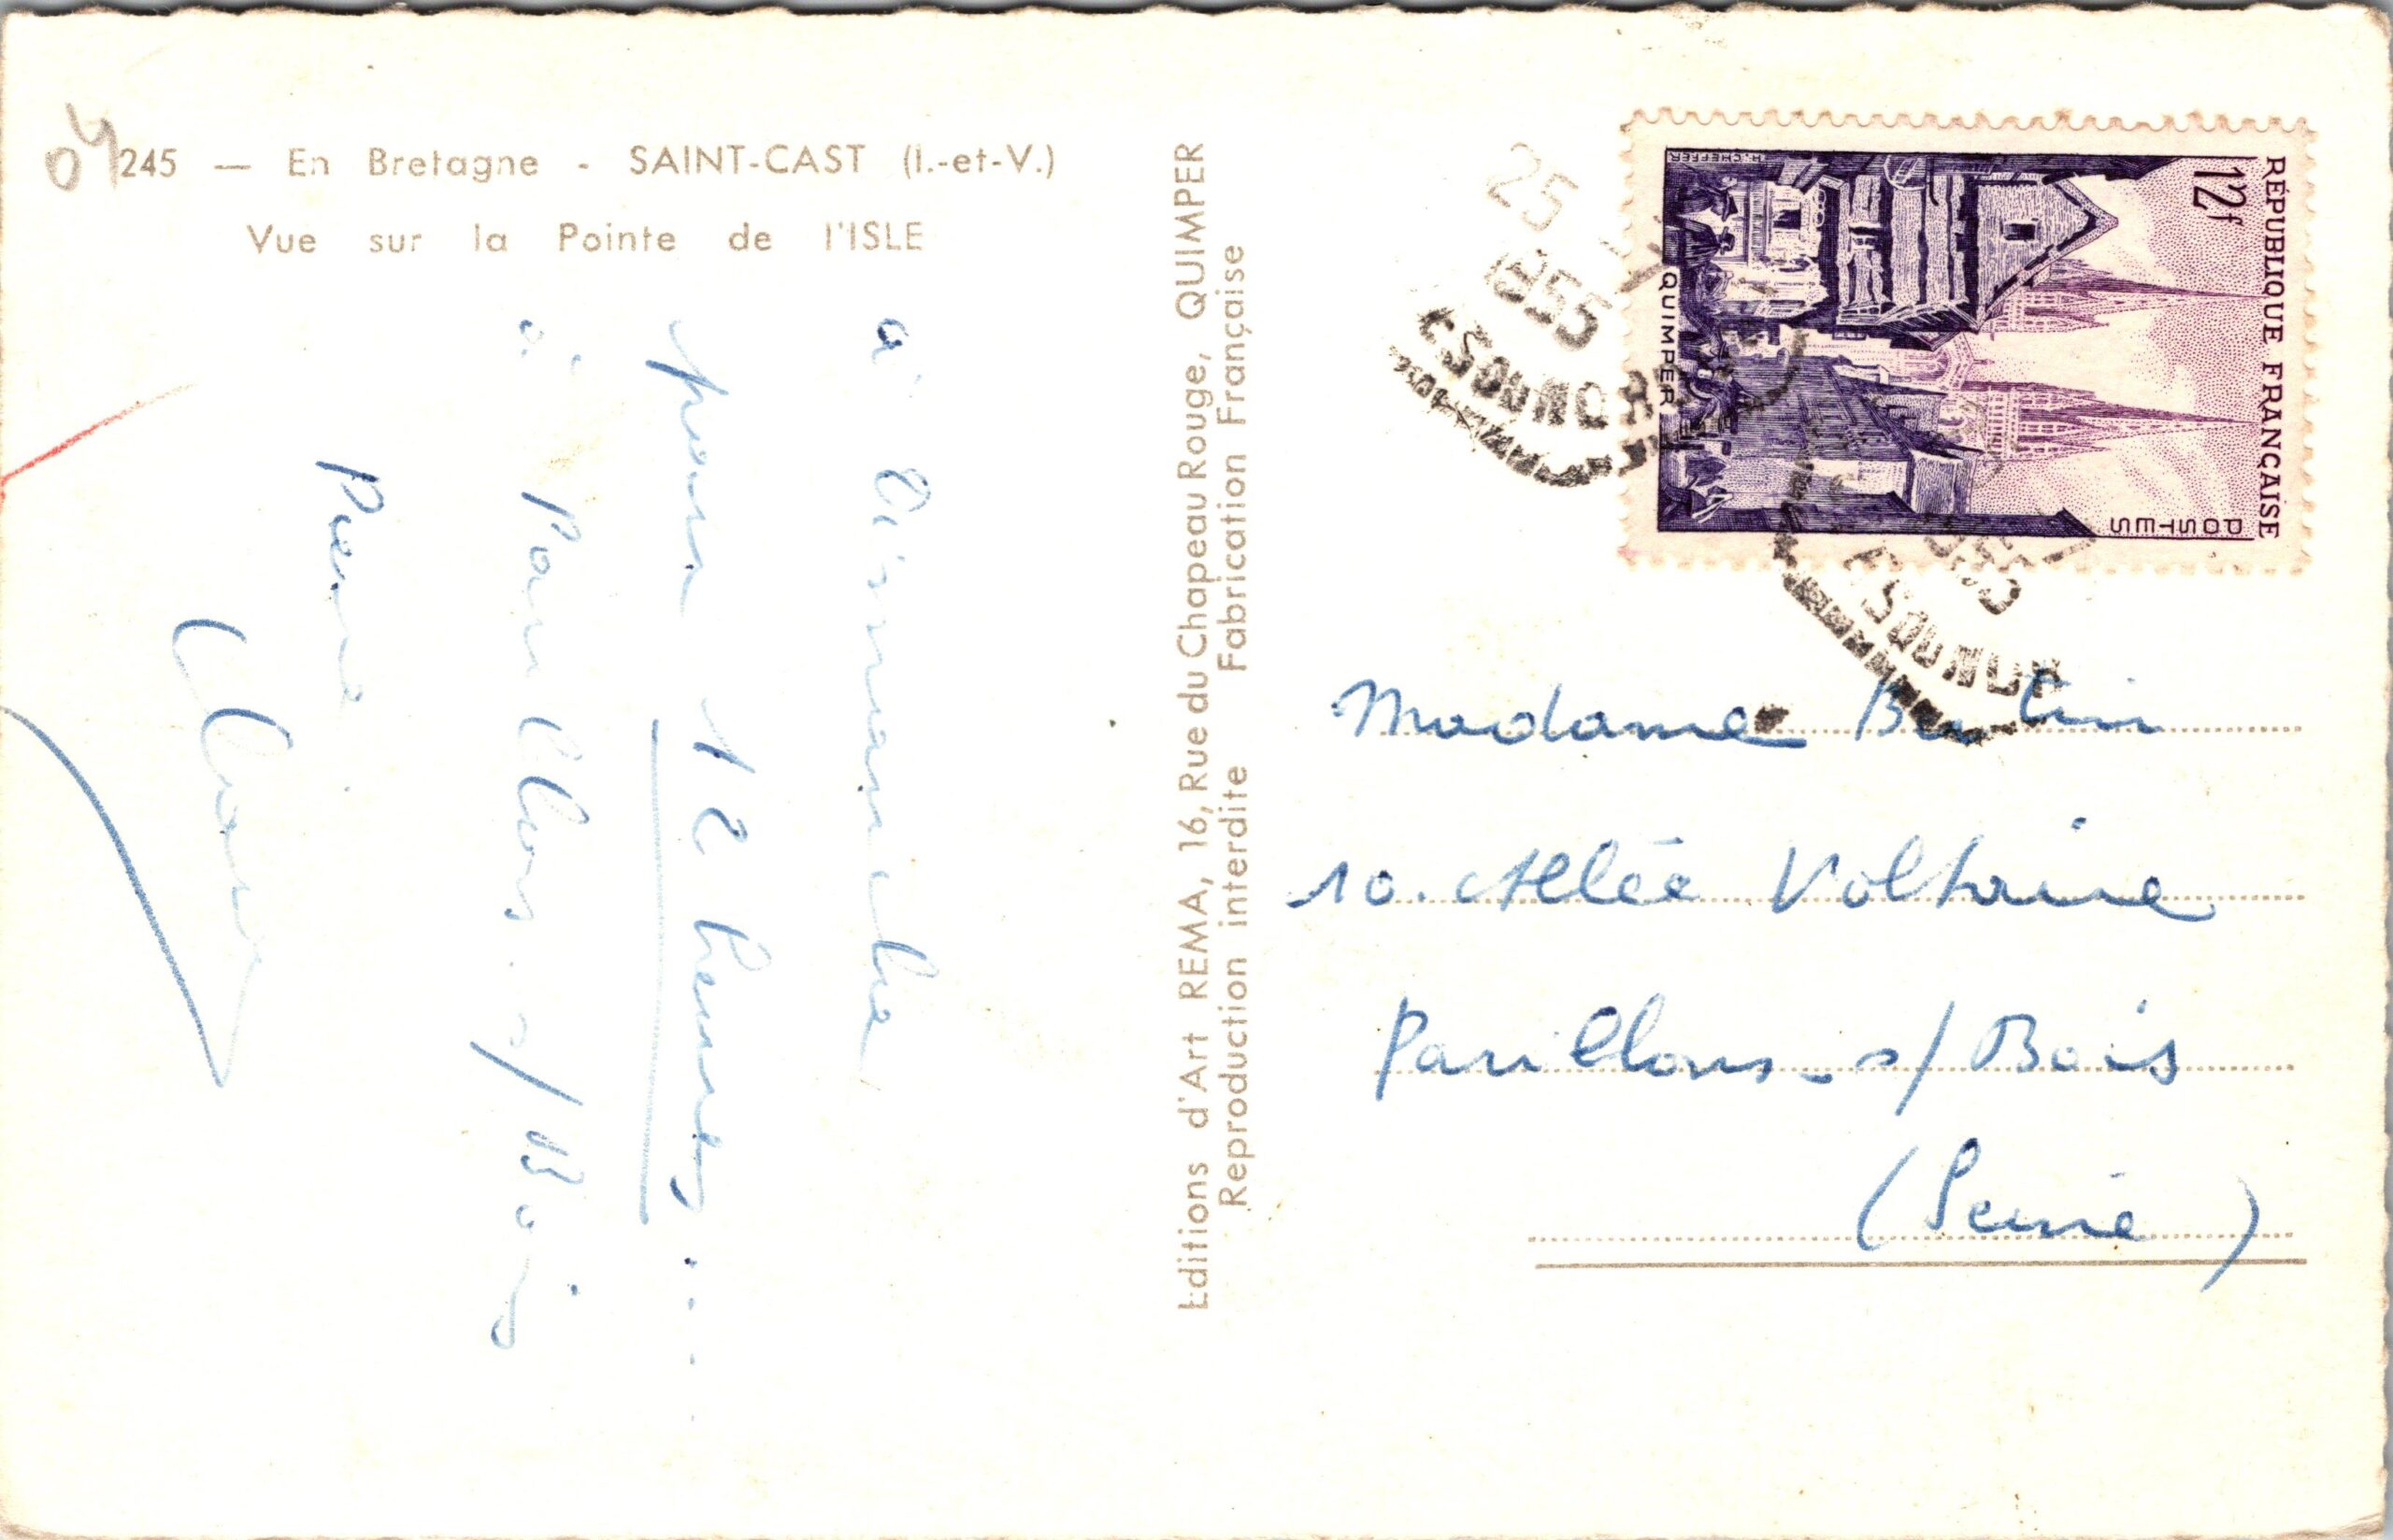 04
245 — En Bretagne - SAINT-CAST (I.-et-V.)
Vue sur la Pointe de l'ISLE
à Dimanche
pour 12 heures....
à Pavillons. s/Bois
Editions d'Art REMA, 16, Rue du Chapeau Rouge, QUIMPER
Reproduction interdite Fabrication Française
25
1955
RÉPUBLIQUE FRANÇAISE
12f
POSTES
QUIMPER
H. CHEFFER
Madame
10. Allée Voltaire
Pavillons - s/Bois
(Seine)